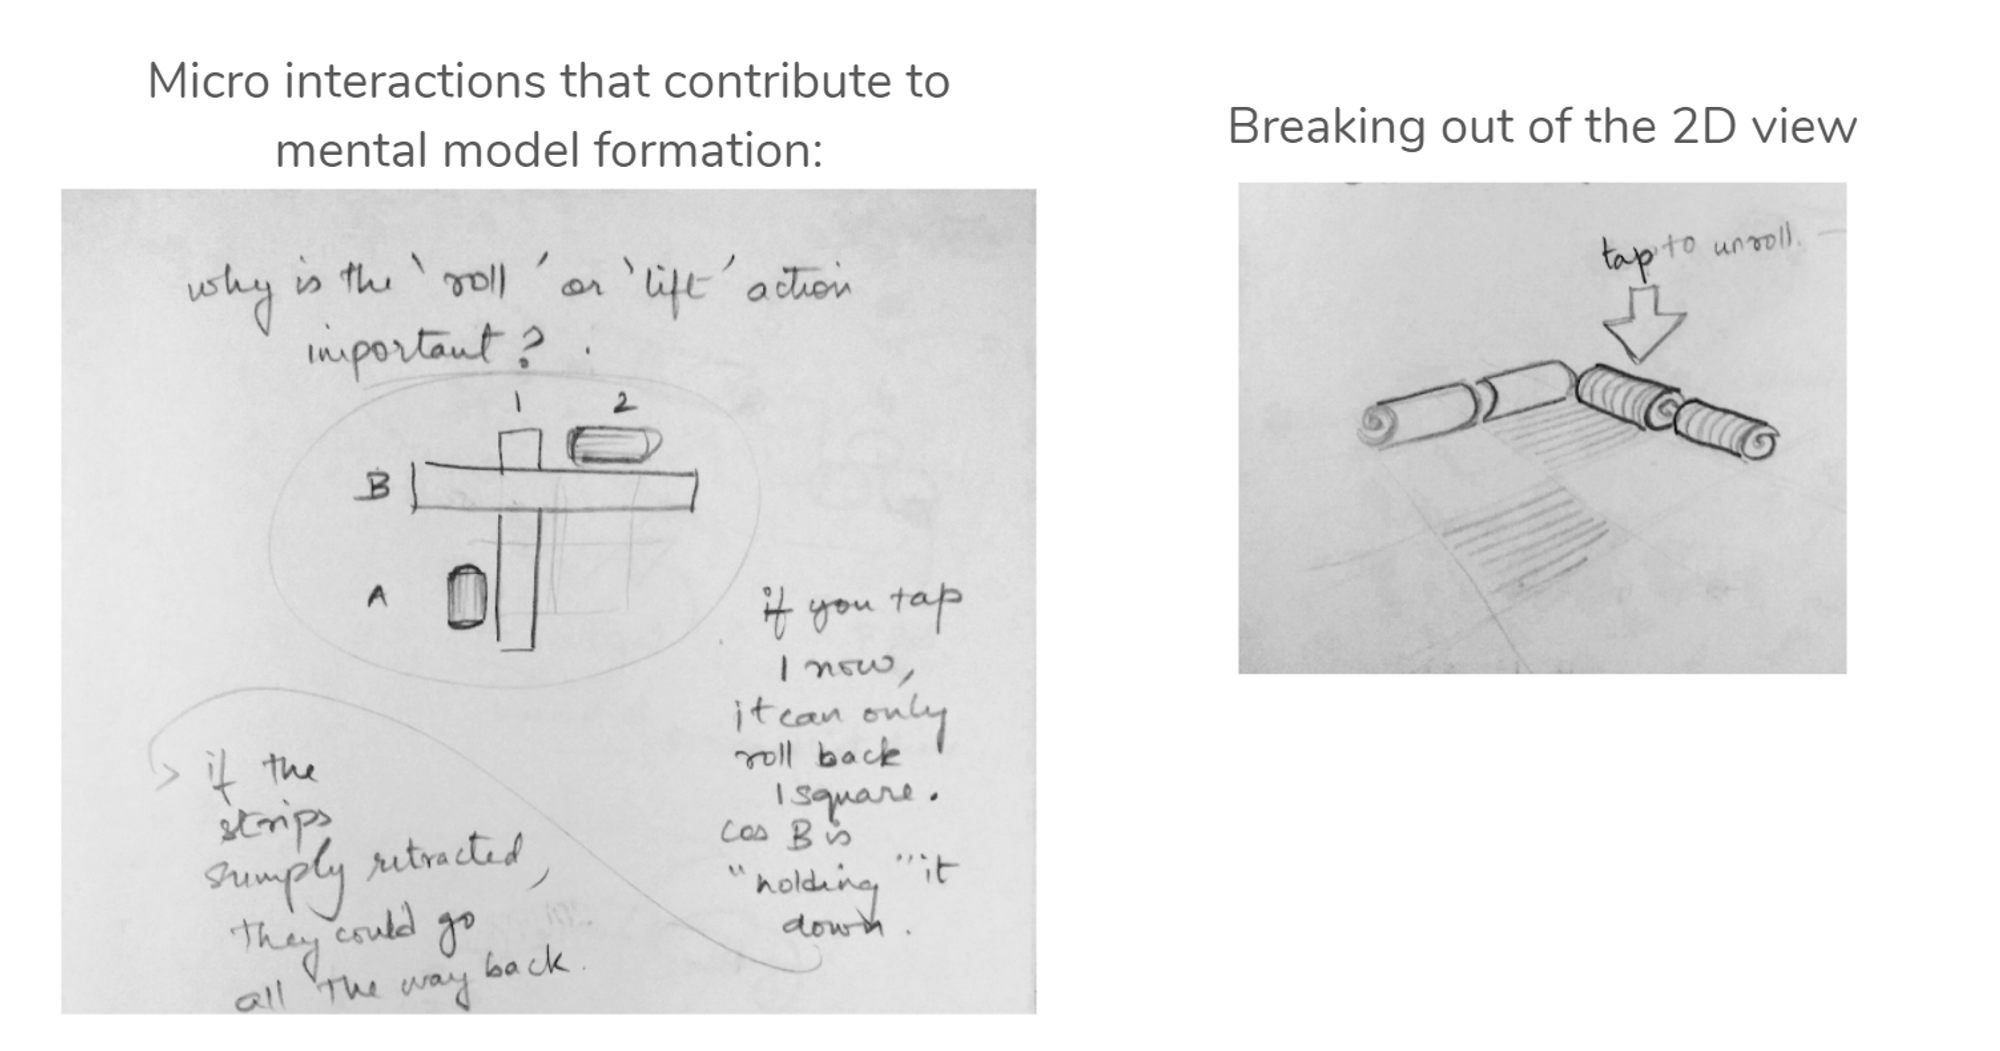 Micro interactions that contribute to
mental model formation:
why is the 'roll' or 'lift' action
important?
1 2
B
A
if you tap
1 now,
it can only
roll back
1 square.
cos B is
"holding" it
down.
if the
strips
simply retracted,
they could go
all the way back.
Breaking out of the 2D view
tap to unroll.